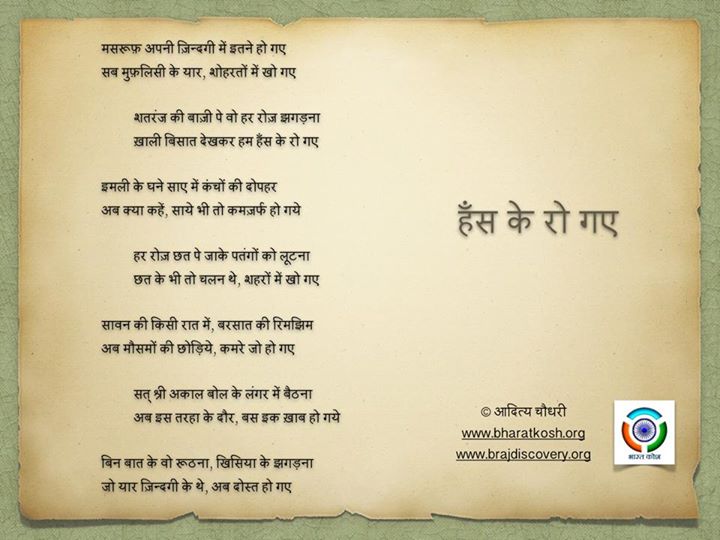 मसरूफ़ अपनी ज़िन्दगी में इतने हो गए
सब मुफ़लिसी के यार, शोहरतों में खो गए
शतरंज की बाज़ी पे वो हर रोज़ झगड़ना
ख़ाली बिसात देखकर हम हँस के रो गए
इमली के घने साए में कंचों की दोपहर
अब क्या कहें, साये भी तो कमज़र्फ हो गये
हर रोज़ छत पे जाके पतंगों को लूटना
छत के भी तो चलन थे, शहरों में खो गए
सावन की किसी रात में, बरसात की रिमझिम
अब मौसमों की छोड़िये, कमरे जो हो गए
सत् श्री अकाल बोल के लंगर में बैठना
अब इस तरहा के दौर, बस इक ख़ाब हो गये
बिन बात के वो रूठना, खिसिया के झगड़ना
जो यार ज़िन्दगी के थे, अब दोस्त हो गए
हँस के रो गए
© आदित्य चौधरी
www.bharatkosh.org
www.brajdiscovery.org
भारत कोश